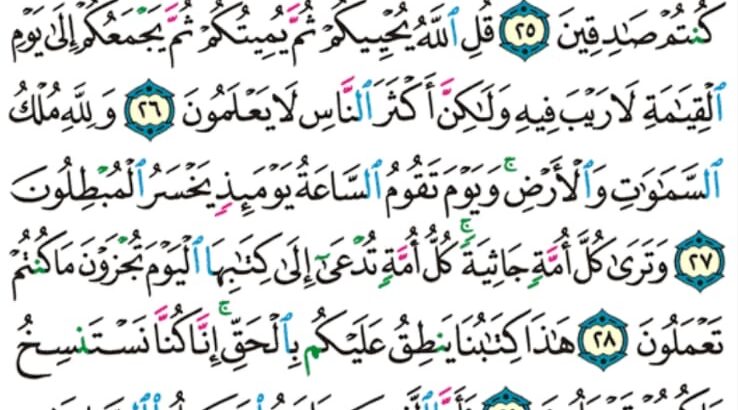 كُنتُمْ صَادِقِينَ ٢٥ قُلِ ٱللَّهُ يُحْيِيكُمْ ثُمَّ يُمِيتُكُمْ ثُمَّ يَجْمَعُكُمْ إِلَىٰ يَوْمِ
ٱلْقِيَامَةِ لَا رَيْبَ فِيهِ وَلَٰكِنَّ أَكْثَرَ ٱلنَّاسِ لَا يَعْلَمُونَ ٢٦ وَلِلَّهِ مُلْكُ
ٱلسَّمَٰوَٰتِ وَٱلْأَرْضِ ۚ وَيَوْمَ تَقُومُ ٱلسَّاعَةُ يَوْمَئِذٍ يَخْسَرُ ٱلْمُبْطِلُونَ
٢٧ وَتَرَىٰ كُلَّ أُمَّةٍ جَاثِيَةً ۚ كُلُّ أُمَّةٍ تُدْعَىٰٓ إِلَىٰ كِتَٰبِهَا ٱلْيَوْمَ تُجْزَوْنَ مَا كُنتُمْ
تَعْمَلُونَ ٢٨ هَٰذَا كِتَٰبُنَا يَنطِقُ عَلَيْكُم بِٱلْحَقِّ ۚ إِنَّا كُنَّا نَسْتَنسِخُ